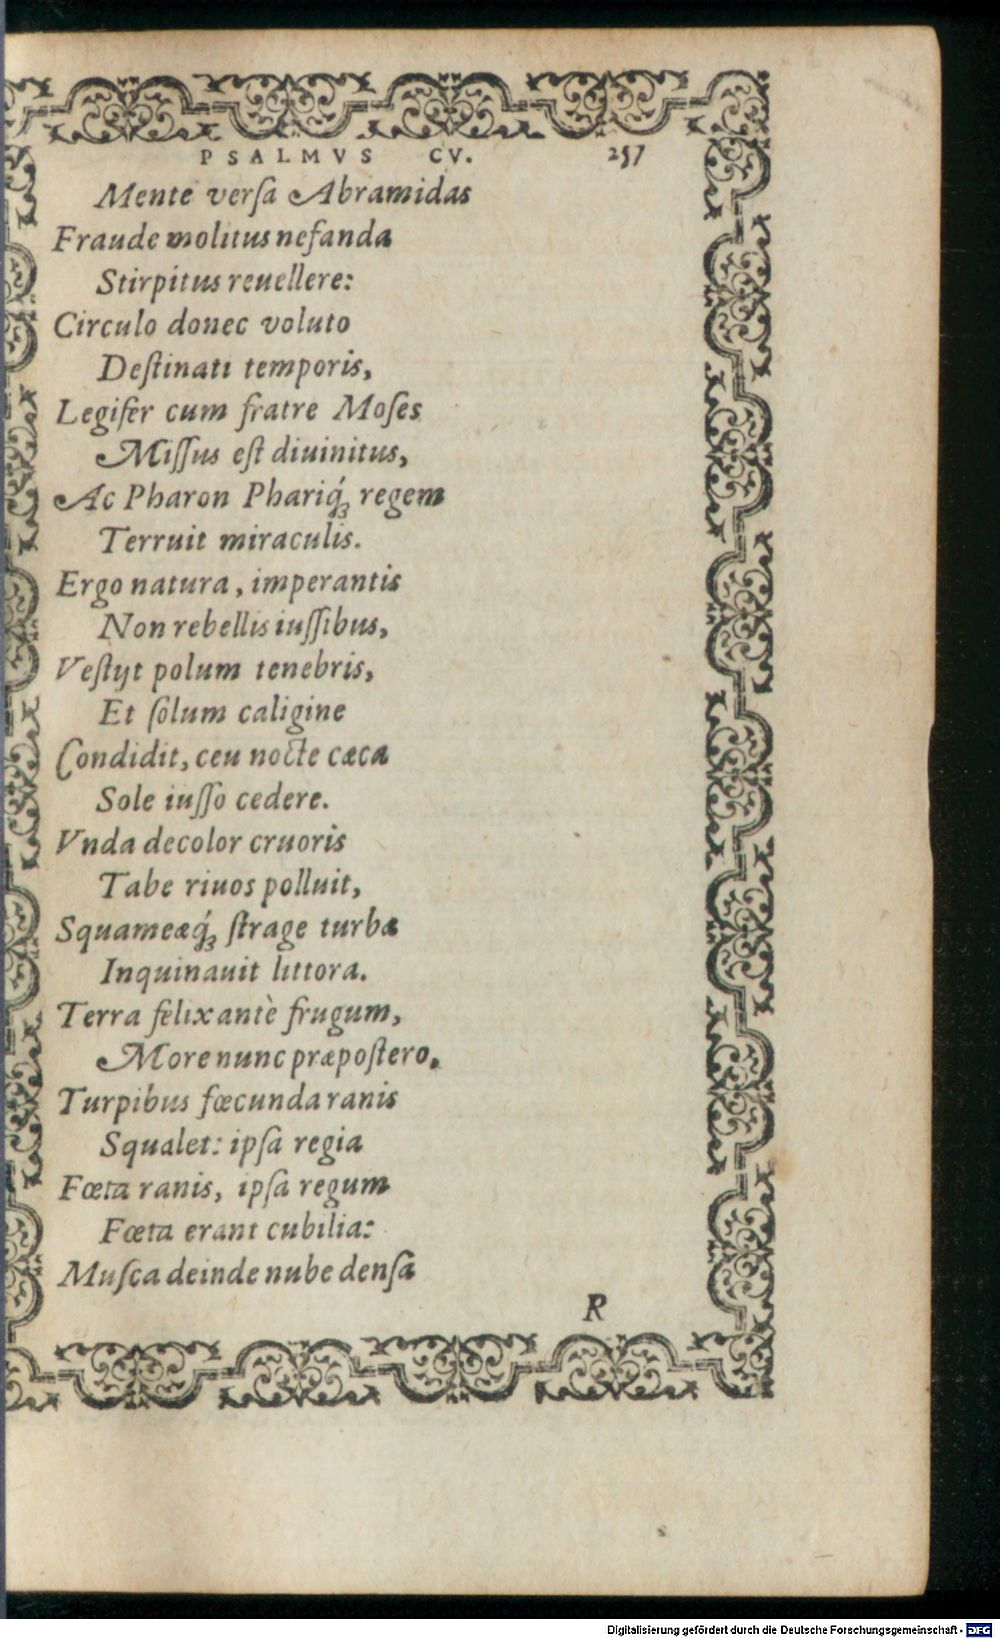 PSALMVS CV. 257
Mente versa Abramidas
Fraude molitus nefanda
Stirpitus reuellere:
Circulo donec voluto
Deſtinati temporis,
Legifer cum fratre Moſes
Miſſus eſt diuinitus,
Ac Pharon Phariq́ꝫ regem
Terruit miraculis.
Ergo natura, imperantis
Non rebellis iuſſibus,
Veſtijt polum tenebris,
Et ſolum caligine
Condidit, ceu nocte cæca
Sole iuſſo cedere.
Vnda decolor cruoris
Tabe riuos polluit,
Squameæq́ꝫ ſtrage turbæ
Inquinauit littora.
Terra felix antè frugum,
More nunc præpoſtero,
Turpibus fœcunda ranis
Squalet: ipſa regia
Fœta ranis, ipſa regum
Fœta erant cubilia:
Muſca deinde nube denſa
R
Digitalisierung gefördert durch die Deutsche Forschungsgemeinschaft - DFG